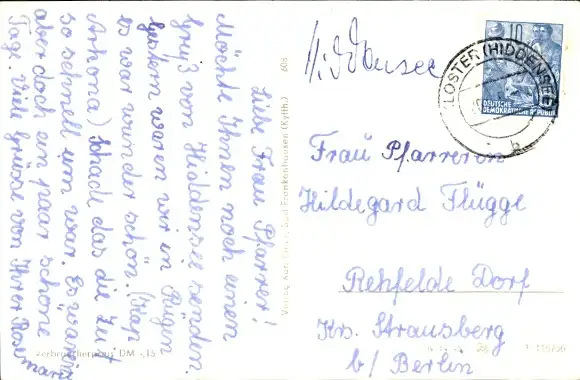 Liebe Frau Pfarrer!
Möchte Ihnen noch einen
Gruß von Hiddensee senden
Gestern waren wir in Rügen
es war wunder schön. (Kap
Arkona) schade das die Zeit
so schnell um war. Es waren
aber doch ein paar schöne
Tage. Viele Grüsse von Ihrer Rosemarie
Verbraucherpreis DM -,15
608
Bad Frankenhausen (Kyffh.)
Hiddensee
10
KLOSTER (HIDDENSEE)
b
DEUTSCHE
DEMOKRATISCHE REPUBLIK
Frau Pfarreren
Hildegard Flügge
Rehfelde Dorf
Krs. Strausberg
b/ Berlin